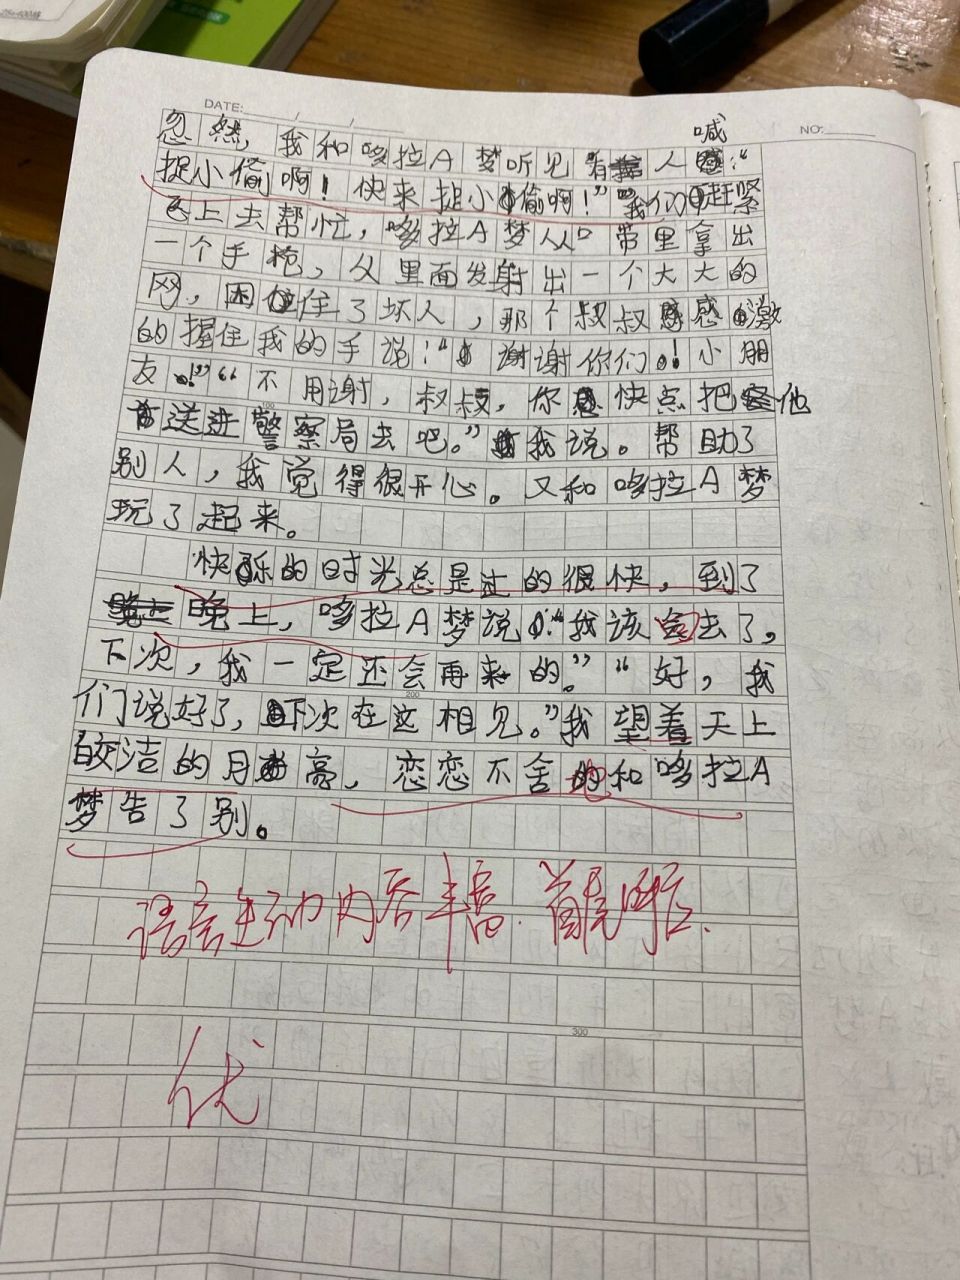 DATE: / /
NO:
忽然，我和哆拉A梦听见有人喊：“
捉小偷啊！快来捉小偷啊！”我们赶紧
飞上去帮忙，哆拉A梦从口带里拿出
一个手枪，从里面发射出一个大大的
网，困住了坏人，那个叔叔感激
的握住我的手说：“谢谢你们！小朋
友！”“不用谢，叔叔，你快点把他
送进警察局去吧。”我说。帮助了
别人，我觉得很开心。又和哆拉A梦
玩了起来。
快乐的时光总是过的很快，到了
晚上，哆拉A梦说：“我该回去了，
下次，我一定还会再来的。”“好，我
们说好了，下次在这相见。”我望着天上
皎洁的月亮，恋恋不舍地和哆拉A
梦告了别。
语言生动内容丰富.
优
100
200
300